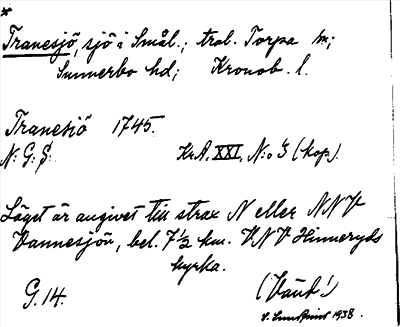 *
Tranesjö, sjö i Smål.; trol. Torpa sn;
Sunnerbo hd; Kronob. l.
Tranesiö 1745.
N: G: S: KrA. XXI, N:o 3 (kop).
Läget är angivet till strax N eller NNV
Vannesjön, bel. 7½ km. VNV Hinneryds
kyrka.
G. 14. (Vänd!)
1938.